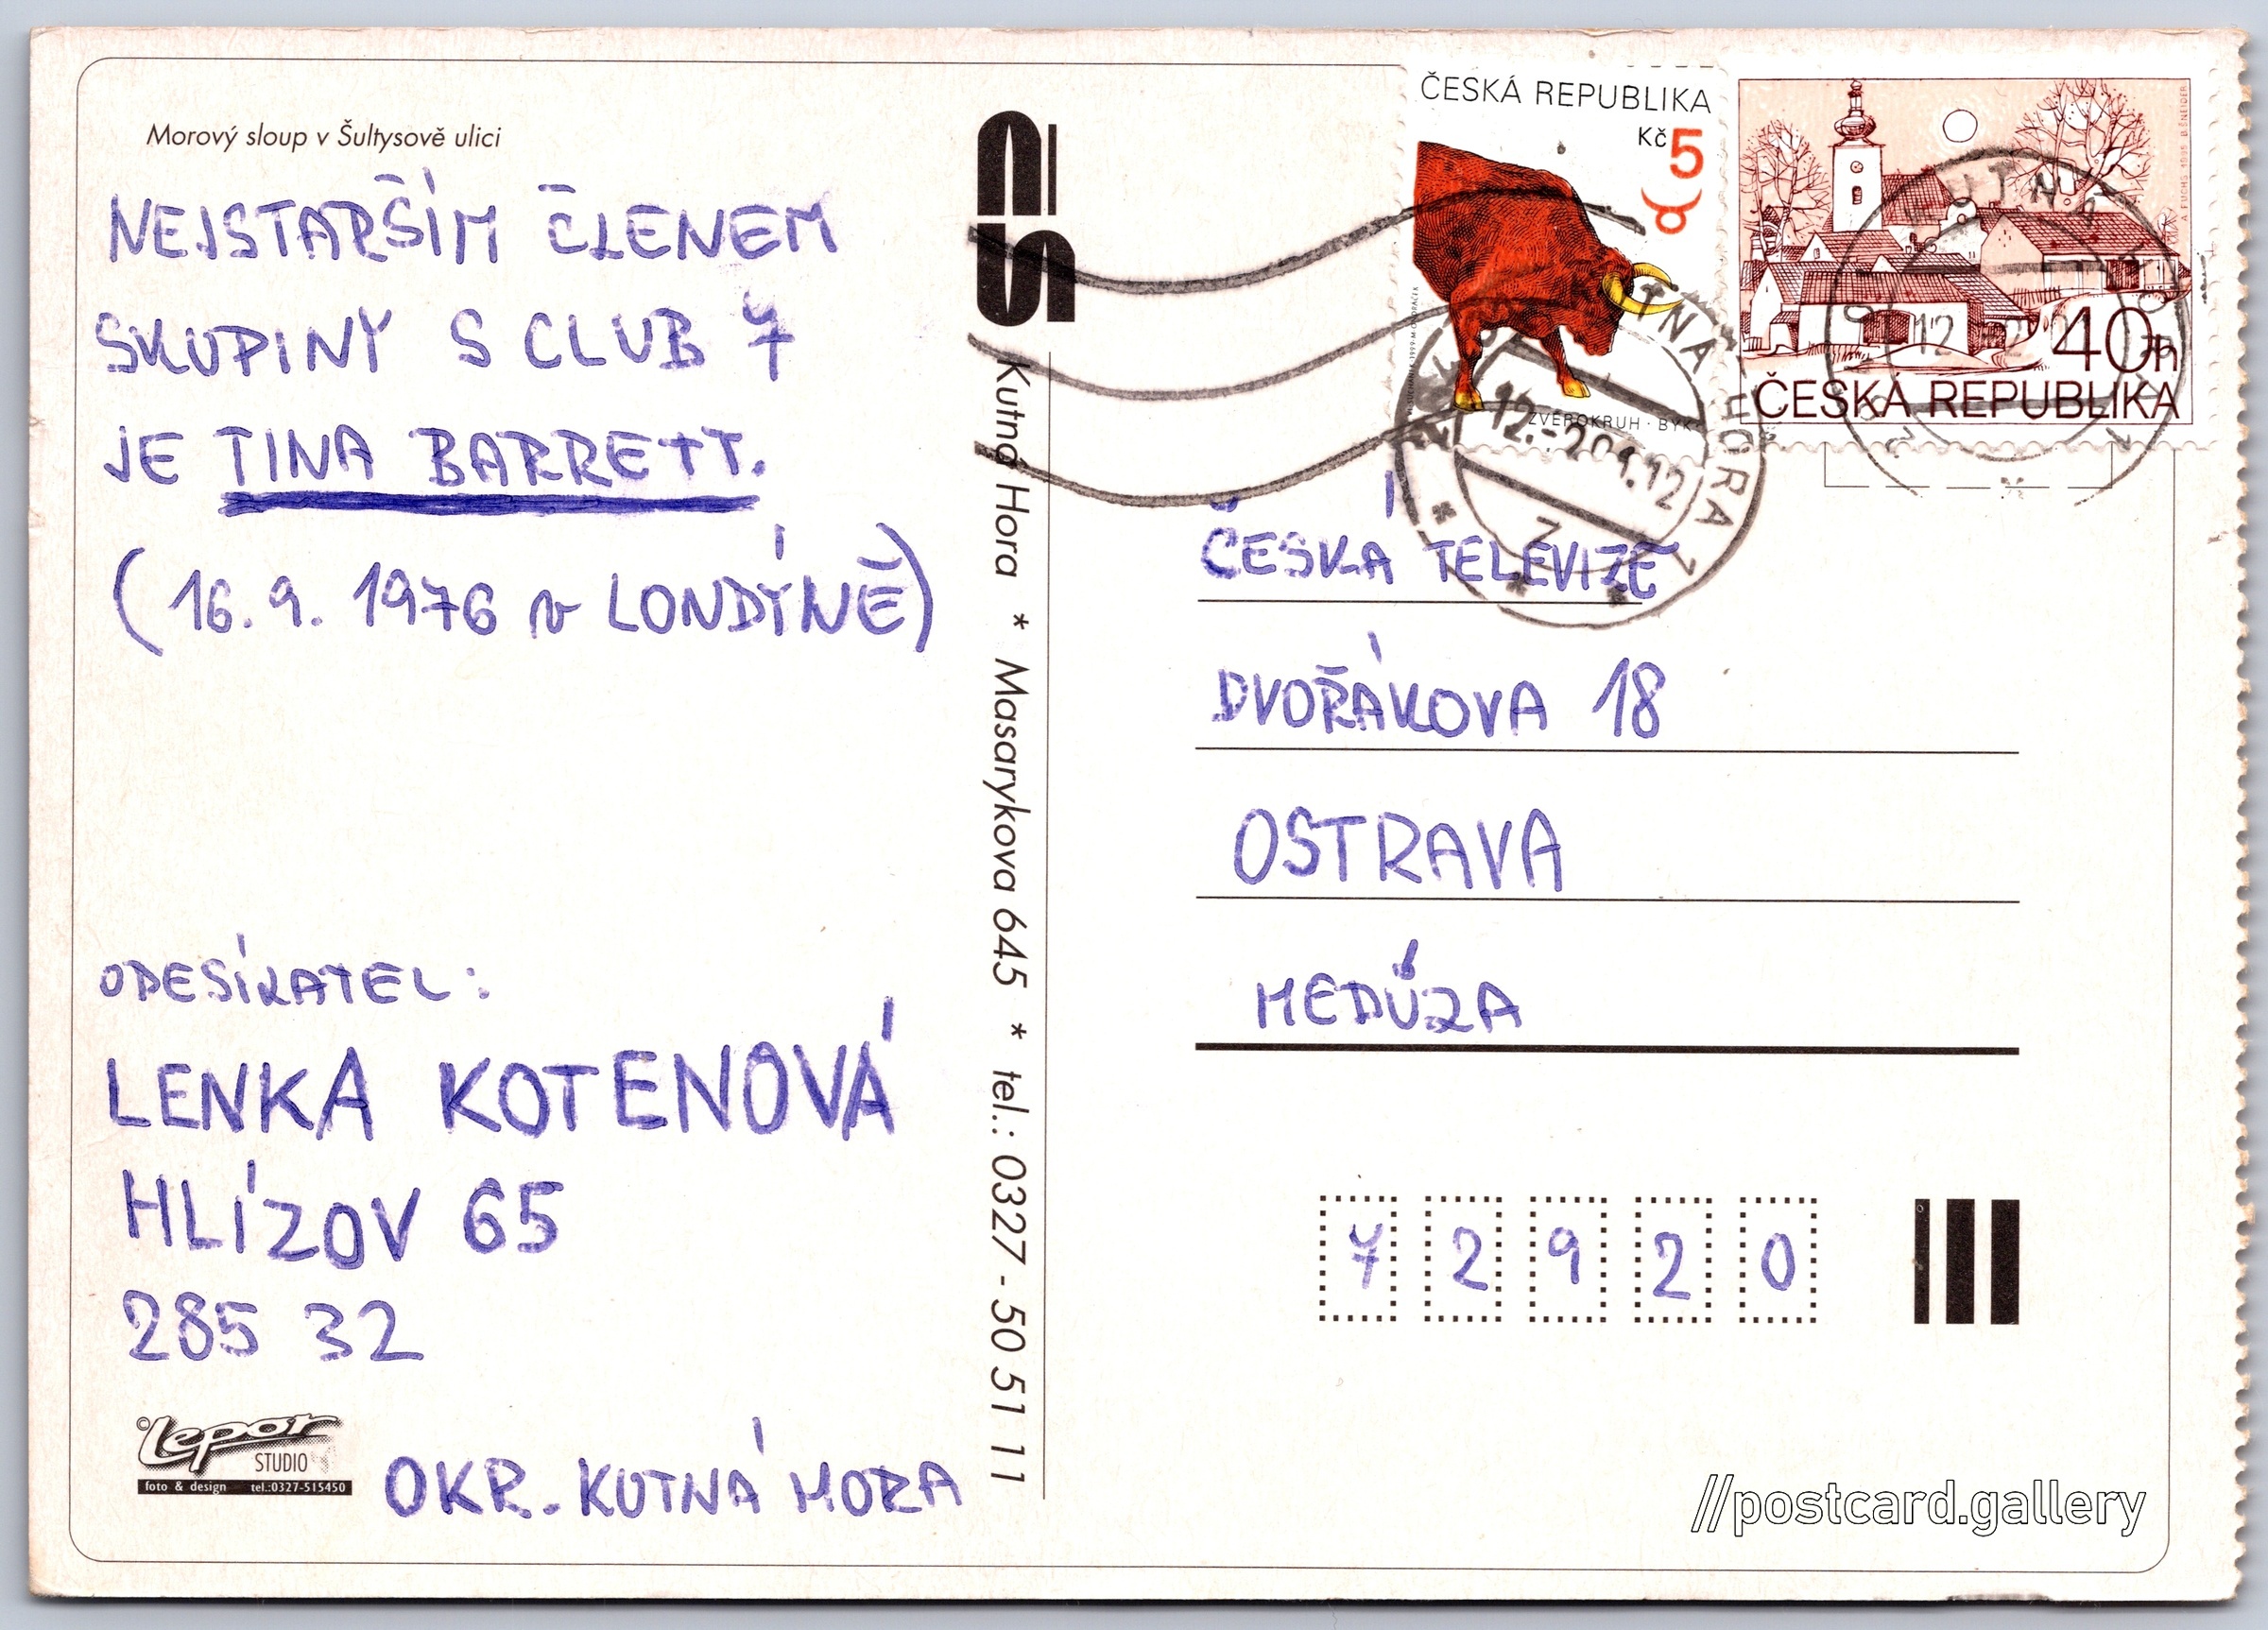 Morový sloup v Šultysově ulici
NEJSTARŠÍM ČLENEM
SKUPINY S CLUB 7
JE TINA BARRETT.
(16.9. 1976 v LONDÝNĚ)
ODESÍLATEL:
LENKA KOTENOVÁ
HLÍZOV 65
285 32
OKR. KUTNÁ HORA
© Lepor
STUDIO
foto & design tel.:0327-515450
Kutná Hora * Masarykova 645 * tel.: 0327 - 50 51 11
ČESKÁ REPUBLIKA
Kč 5
ZVĚROKRUH · BÝK
40h
ČESKÁ REPUBLIKA
KUTNÁ HORA 1
12.-2 01.12
ČESKÁ TELEVIZE
DVOŘÁKOVA 18
OSTRAVA
MEDÚZA
7 2 9 2 0
//postcard.gallery